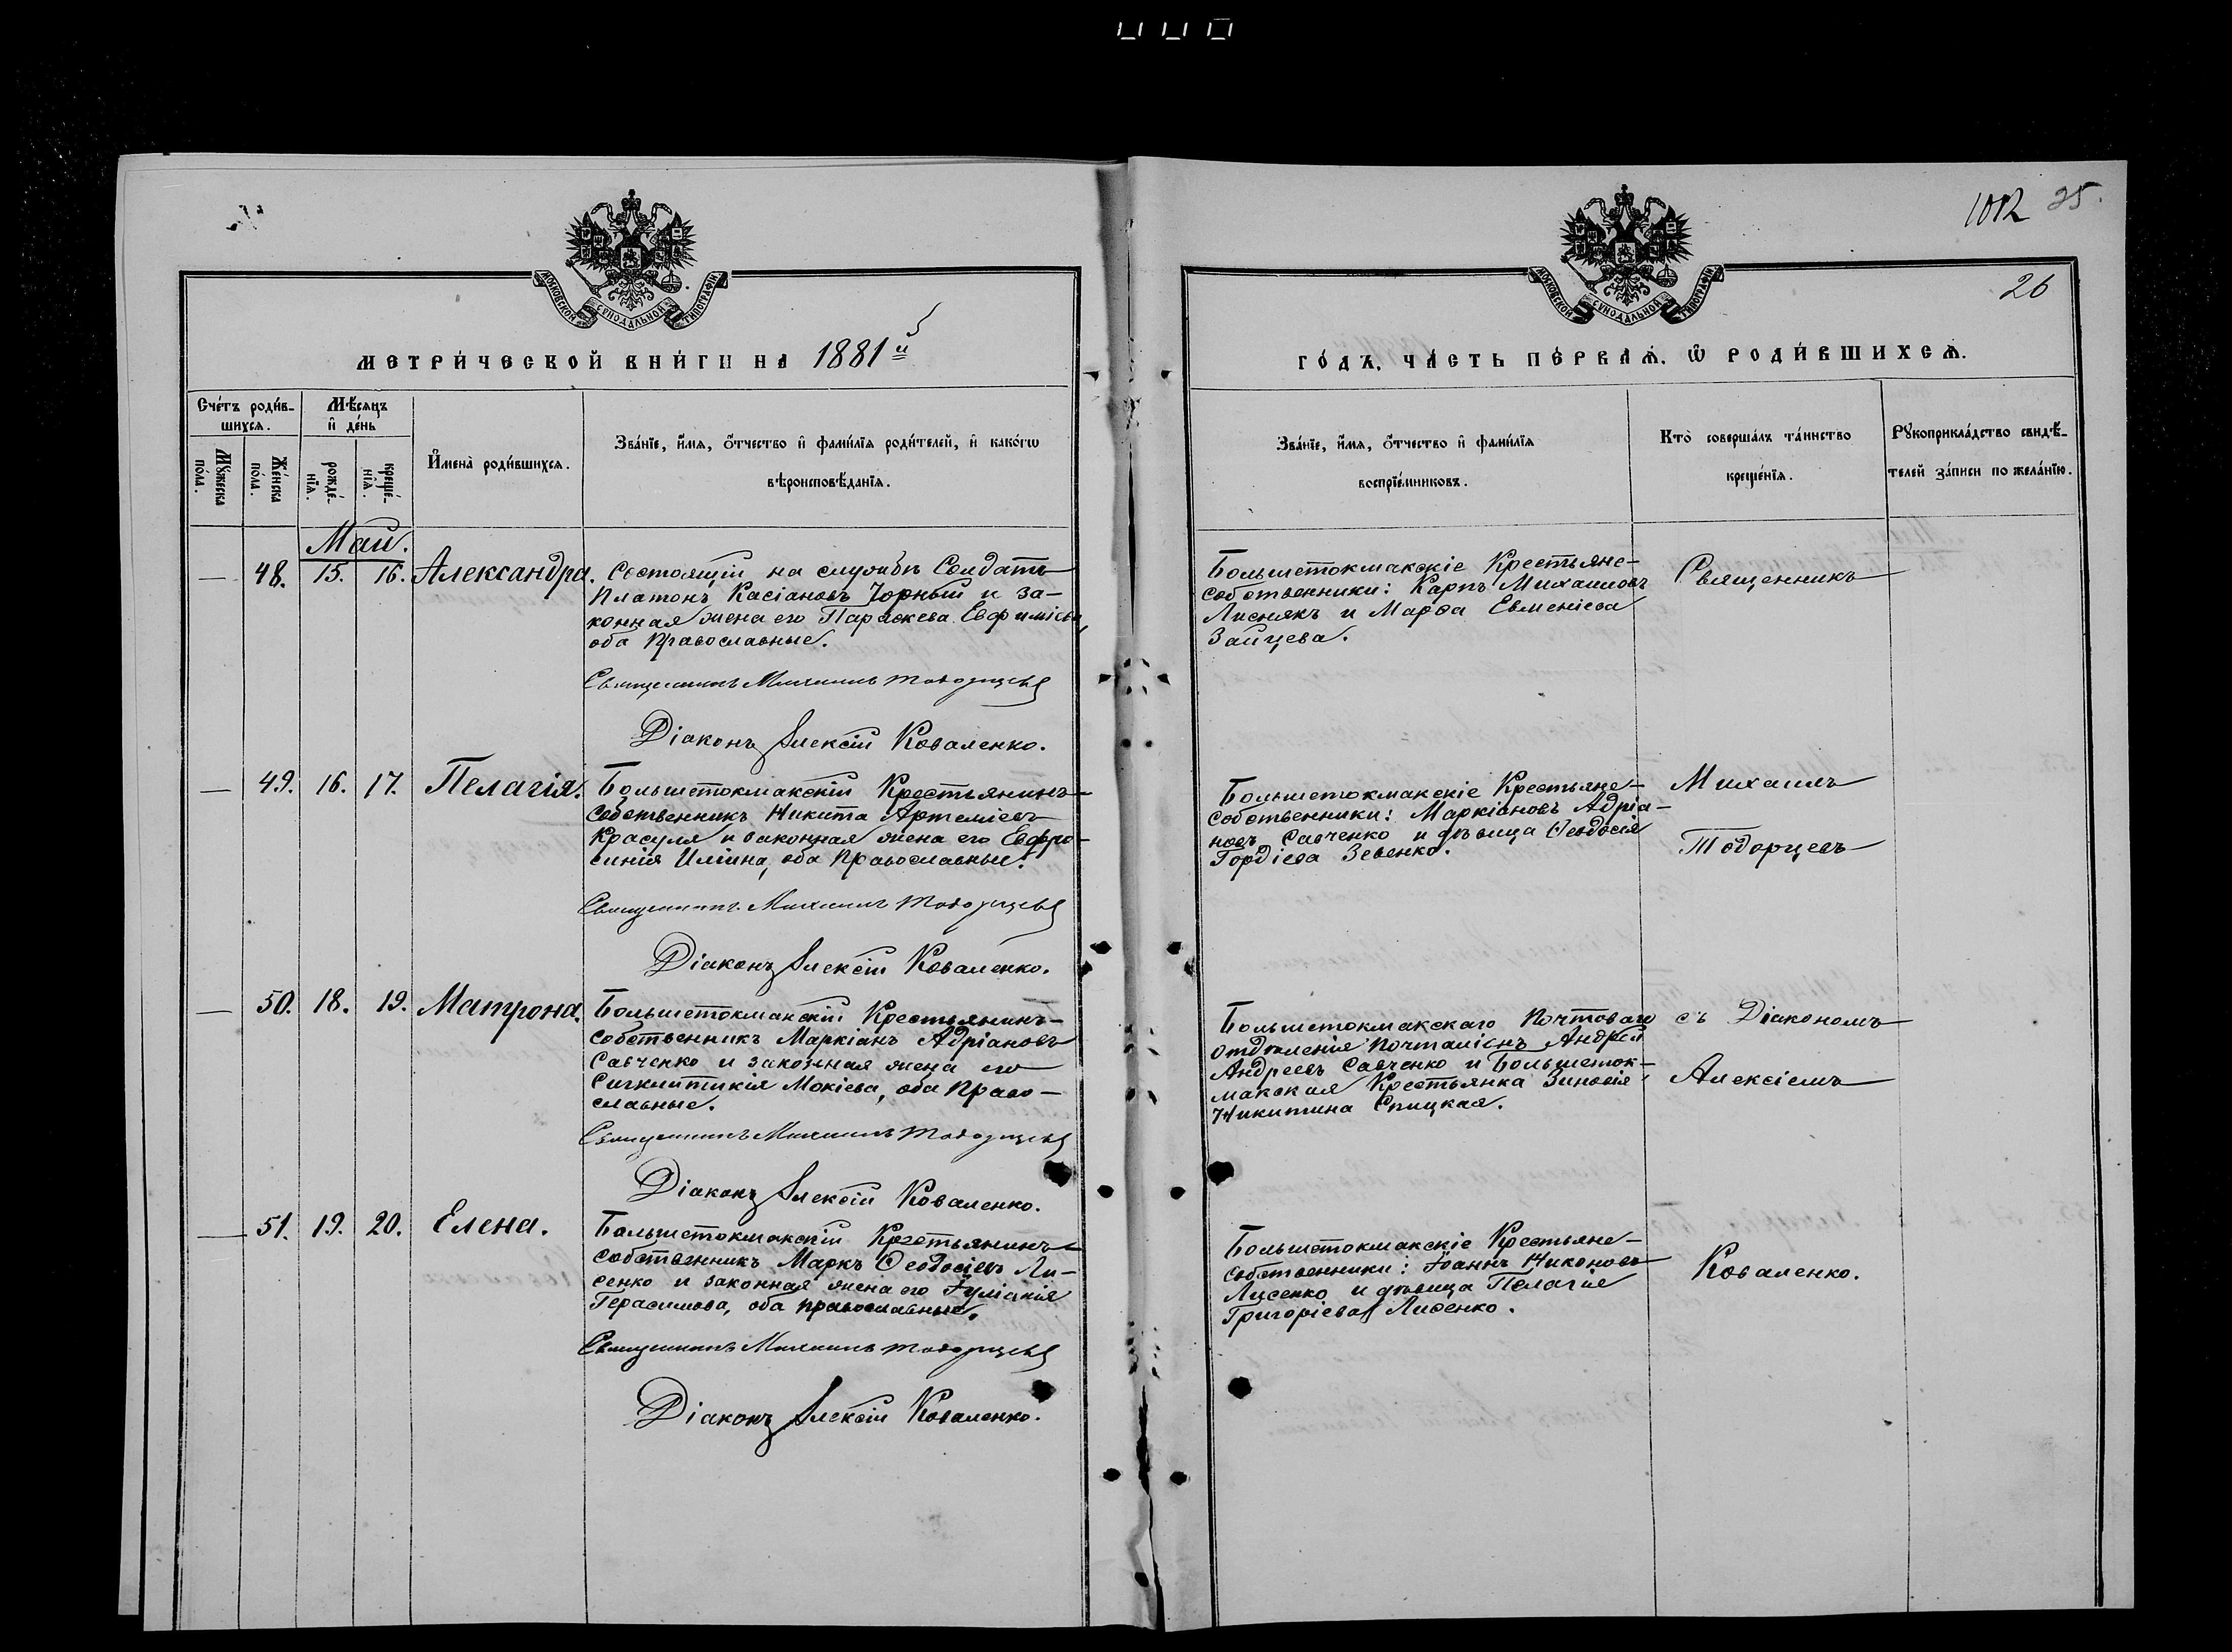 1012 25.
26
МОСКОВСКОЙ СѴНОДАЛЬНОЙ ТИПОГРАФІИ
МОСКОВСКОЙ СѴНОДАЛЬНОЙ ТИПОГРАФІИ
МЕТРИ́ЧЕСКОЙ КНИ́ГИ НА 1881й
ГО́ДЪ, ЧА́СТЬ ПЕ́РВАѦ, Ѿ РОДИ́ВШИХСѦ.
Сче́тъ роди́в-
шихсѧ.
Мꙋ́жеска по́ла.
Же́нска по́ла.
Мѣ́сѧцъ и҆ де́нь
рожде́-нїѧ.
креще́-нїѧ.
И҆мена̀ роди́вшихсѧ.
Зва́нїе, и҆́мѧ, ѻ҆́тчество и҆ фами́лїѧ роди́телей, и҆ како́гѡ
вѣроисповѣ́данїѧ.
Зва́нїе, и҆́мѧ, ѻ҆́тчество и҆ фами́лїѧ
воспрїе́мниковъ.
Кто̀ соверша́лъ та́инство
креще́нїѧ.
Рꙋкоприкла́дство свидѣ́-
телей за́писи по жела́нїю.
Май.
— 48. 15. 16. Александра. Состоящій на службѣ Солдатъ
Платонъ Касіановъ Чорный и за-
конная жена его Параскева Евфиміева,
оба Православные.
Священникъ Михаилъ Тодорцевъ
Діаконъ Алексій Коваленко.
Большетокмакскіе Крестьяне-
собственники: Карпъ Михаиловъ
Лиснякъ и Марѳа Евменіева
Зайцева.
Священникъ
— 49. 16. 17. Пелагія. Большетокмакскій Крестьянинъ-
собственникъ Никита Артеміевъ
Красуля и законная жена его Евфро-
синія Иліина, оба Православные.
Священникъ Михаилъ Тодорцевъ
Діаконъ Алексій Коваленко.
Большетокмакскіе Крестьяне-
собственники: Маркіановъ Адріа-
новъ Савченко и дѣвица Ѳеодосія
Гордіева Зевенко.
Михаилъ
Тодорцевъ
— 50. 18. 19. Матрона. Большетокмакскій Крестьянинъ-
собственникъ Маркіанъ Адріановъ
Савченко и законная жена его
Сигклитикія Мокіева, оба Право-
славные.
Священникъ Михаилъ Тодорцевъ
Діаконъ Алексій Коваленко.
Большетокмакскаго Почтоваго
отдѣленія Почталіонъ Андрей
Андреевъ Савченко и Большеток-
макская Крестьянка Зиновія
Никитина Спицкая.
съ Діакономъ
Алексіемъ
— 51. 19. 20. Елена. Большетокмакскій Крестьянинъ-
собственникъ Маркъ Ѳеодосіевъ Ли-
сенко и законная жена его Іуліанія
Герасимова, оба православные.
Священникъ Михаилъ Тодорцевъ
Діаконъ Алексій Коваленко.
Большетокмакскіе Крестьяне-
собственники: Іоаннъ Никоновъ
Лисенко и дѣвица Пелагія
Григоріева Лисенко.
Коваленко.